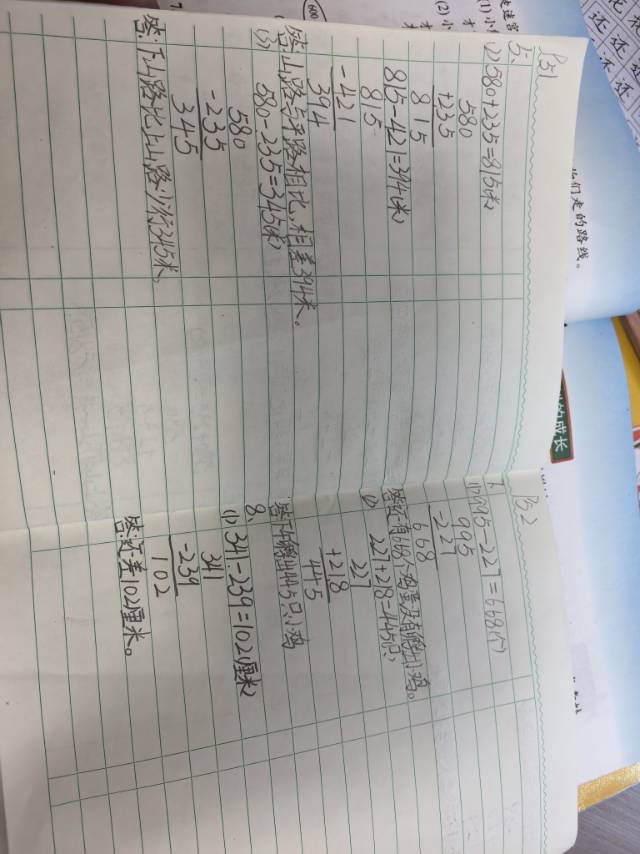 P51
5、
(1) 580+235=815(米)
580
+235
815
815-421=394(米)
815
-421
394
答:山路与平路相比,相差394米。
580-235=345(米)
580
-235
345
答:下山路比上山路少行345米。
P52
7、
995
-221
668
答:还有668个鸡蛋没有孵出小鸡。
227+218=445(只)
227
+218
445
445只小鸡
8、
(1) 341-239=102(厘米)
341
-239
102
答:还差102厘米。
(1)小
(2)小
600
们走的路线。
的成长
还 还
还 还